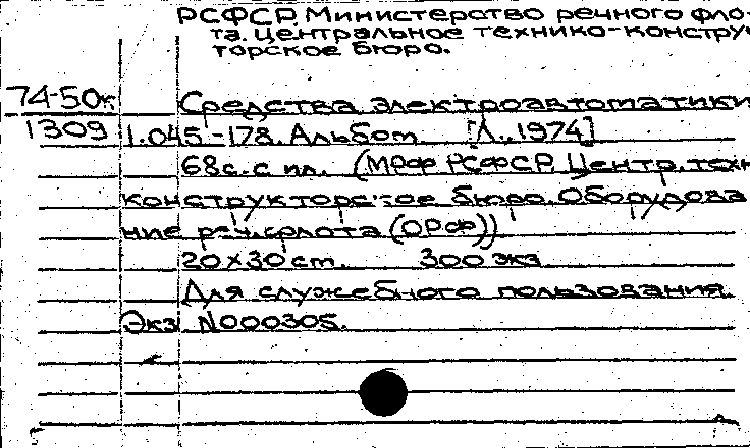 РСФСР. Министерство речного фло-
та. Центральное технико-конструк
торское бюро.
74-50к Средства электроавтоматики
1309 1.045.-178. Альбом [Л., 1974]
68с. с ил. (МРФ РСФСР. Центр. техн
конструкторское бюро. Оборудова
ние реч. флота (ОРФ))
20×30 см. 300 экз
Для служебного пользования.
Экз N000305.